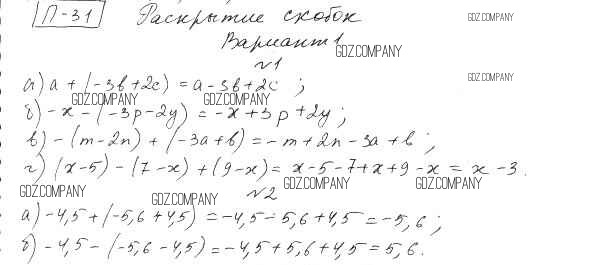 П-31 Раскрытие скобок GDZ.COMPANY
Вариант 1 GDZ.COMPANY
№1
а) a + (-3b+2c) = a - 3b + 2c ; GDZ.COMPANY
GDZ.COMPANY GDZ.COMPANY
б) -x - (-3p-2y) = -x + 3p + 2y ;
в) -(m-2n) + (-3a+b) = -m + 2n - 3a + b ;
г) (x-5) - (7-x) + (9-x) = x-5-7+x+9-x = x-3.
GDZ.COMPANY GDZ.COMPANY GDZ.COMPANY GDZ.COMPANY
№2
а) -4,5 + (-5,6 + 4,5) = -4,5 - 5,6 + 4,5 = -5,6 ;
б) -4,5 - (-5,6 - 4,5) = -4,5 + 5,6 + 4,5 = 5,6.